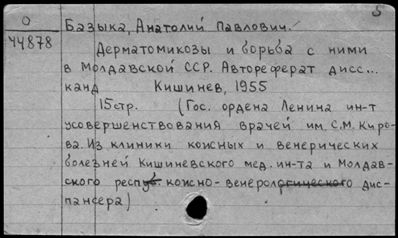 5
О
44878
Базыка, Анатолий Павлович.
Дерматомикозы и борьба с ними
в Молдавской ССР. Автореферат дисс...
канд Кишинев, 1955
15стр. (Гос. ордена Ленина ин-т
усовершенствования врачей им. С.М. Киро-
ва. Из клиники кожных и венерических
болезней Кишиневского мед. ин-та и Молдав-
ского респуб. кожно-венерологического дис-
пансера)